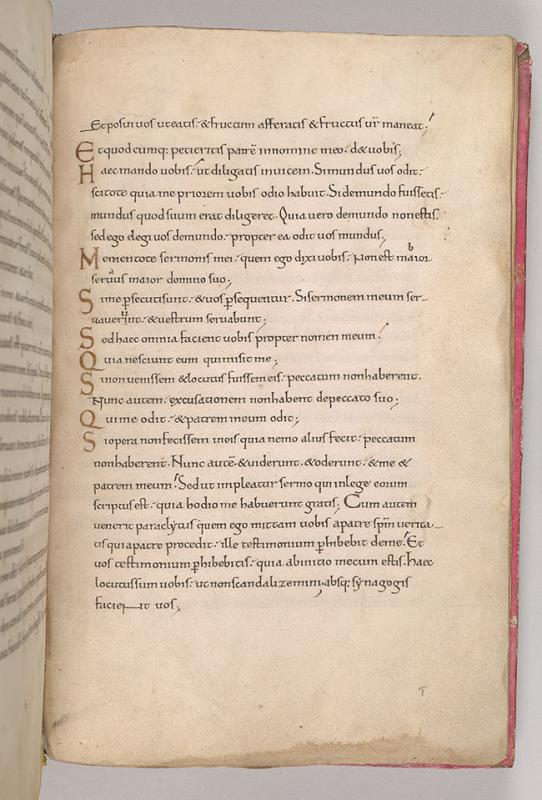 Et posui vos ut eatis. & fructum afferatis & fructus vr̄ maneat;
Et quodcumq; petieritis patrē in nomine meo. det vobis;
Haec mando vobis. ut diligatis invicem. Si mundus vos odit.
scitote quia me priorem vobis odio habuit. Si de mundo fuissetis.
mundus quod suum erat diligeret. Quia vero de mundo non estis.
sed ego elegi vos de mundo. propter ea odit vos mundus;
Mementote sermonis mei. quem ego dixi vobis. Non est maior
servus maior domino suo;
Si me p̄secuti sunt. & vos p̄sequentur. Si sermonem meum ser-
vaverunt. & vestrum servabunt;
Sed haec omnia facient vobis propter nomen meum.
Quia nesciunt eum qui misit me;
Si non venissem & locutus fuissem eis. peccatum non haberent.
Nunc autem. excusationem non habent de peccato suo;
Qui me odit. & patrem meum odit;
Si opera non fecissem in eis quia nemo alius fecit. peccatum
non haberent. Nunc autē. & viderunt. & oderunt. & me &
patrem meum. Sed ut impleatur sermo qui in lege eorum
scriptus est. quia hodio me habuerunt gratis; Cum autem
venerit paraclytus quem ego mittam vobis a patre sp̄m verita-
tis qui a patre procedit. ille testimonium p̄hibebit de me. Et
vos testimonium p̄hibebitis. quia ab initio mecum estis. Haec
locutus sum vobis. ut non scandalizemini. absq; synagogis
facient vos;